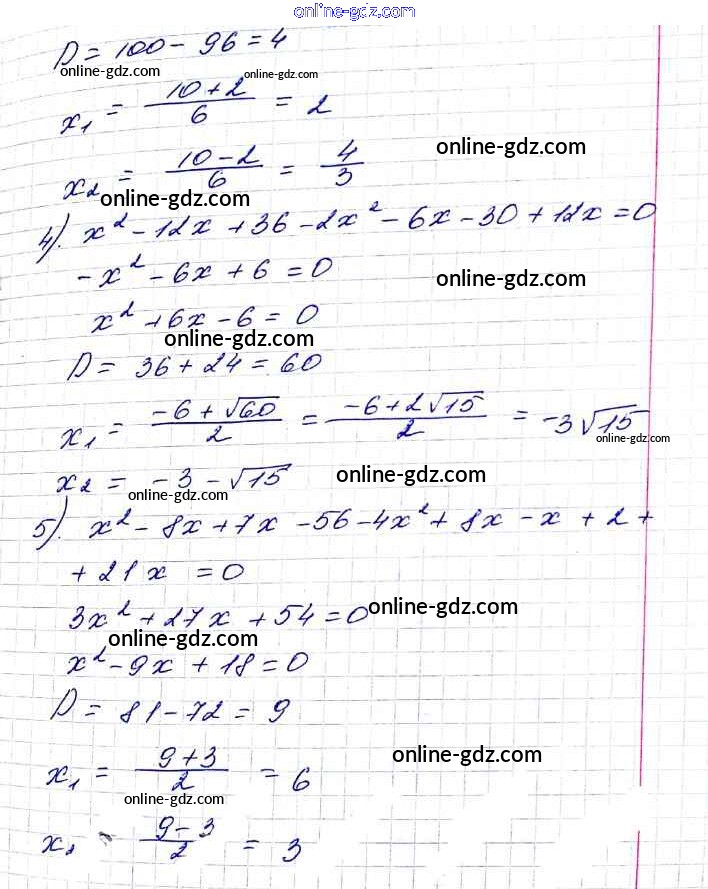 online-gdz.com
D = 100 - 96 = 4
online-gdz.com online-gdz.com
x₁ = (10+2)/6 = 2
online-gdz.com
x₂ = (10-2)/6 = 4/3
online-gdz.com
4). x² - 12x + 36 - 2x² - 6x - 30 + 12x = 0
-x² - 6x + 6 = 0
online-gdz.com
x² + 6x - 6 = 0
online-gdz.com
D = 36 + 24 = 60
x₁ = (-6 + √60)/2 = (-6 + 2√15)/2 = -3√15
online-gdz.com
x₂ = -3 - √15
online-gdz.com online-gdz.com
5). x² - 8x + 7x - 56 - 4x² + 8x - x + 2 +
+ 21x = 0
3x² + 27x + 54 = 0
online-gdz.com
online-gdz.com
x² - 9x + 18 = 0
D = 81 - 72 = 9
online-gdz.com
x₁ = (9+3)/2 = 6
online-gdz.com
x₂ = (9-3)/2 = 3